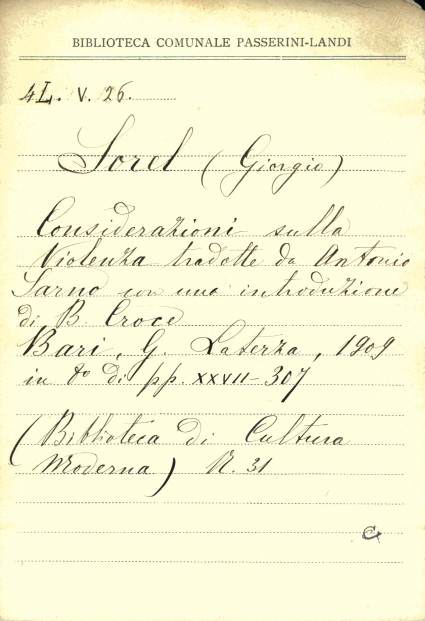 BIBLIOTECA COMUNALE PASSERINI-LANDI
4L. V. 26.
Sorel (Giorgio)
Considerazioni sulla
Violenza tradotte da Antonio
Sarno con una introduzione
di B. Croce
Bari, G. Laterza, 1909
in 8º di pp. XXVII-307
(Biblioteca di Cultura
Moderna) N. 31
G